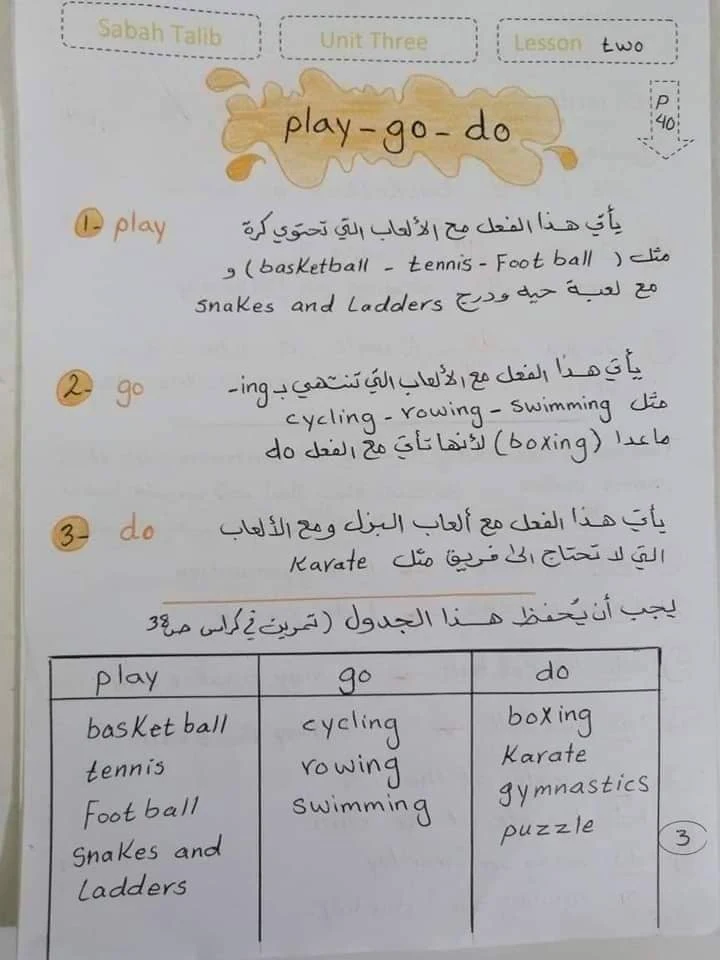 Sabah Talib
Unit Three
Lesson two
P 40
play-go-do
1- play
يأتي هذا الفعل مع الألعاب التي تحتوي كرة
مثل ( basketball - tennis - Foot ball ) و
مع لعبة حيه ودرج snakes and Ladders
2- go
يأتي هذا الفعل مع الألعاب التي تنتهي بـ ing-
مثل cycling - rowing - swimming
ماعدا (boxing) لأنها تأتي مع الفعل do
3- do
يأتي هذا الفعل مع ألعاب البزل ومع الألعاب
التي لا تحتاج الى فريق مثل Karate
يجب أن يُحفظ هذا الجدول (تمرين في كراس ص38
play go do
basket ball cycling boxing
tennis rowing Karate
Foot ball swimming gymnastics
Snakes and puzzle
Ladders
3